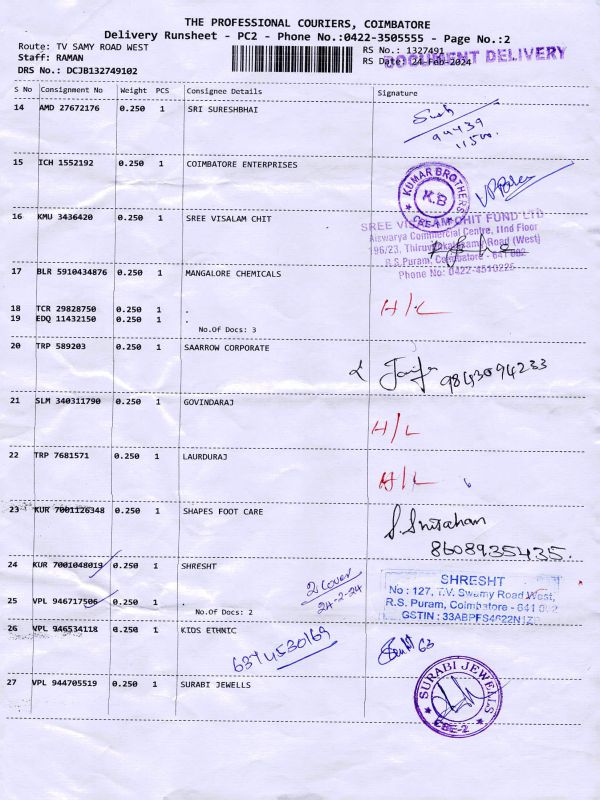 THE PROFESSIONAL COURIERS, COIMBATORE
Delivery Runsheet - PC2 - Phone No.:0422-3505555 - Page No.:2
Route: TV SAMY ROAD WEST
RS No.: 1327491
Staff: RAMAN
RS Date: 24-Feb-2024
DOCUMENT DELIVERY
DRS No.: DCJB132749102
S No Consignment No Weight PCS Consignee Details Signature
14 AMD 27672176 0.250 1 SRI SURESHBHAI
94439
15 ICH 1552192 0.250 1 COIMBATORE ENTERPRISES
KUMAR BROTHERS
K.B
CBE
16 KMU 3436420 0.250 1 SREE VISALAM CHIT
SREE VISALAM CHIT FUND LTD
Aiswarya Commercial Centre, IInd Floor
196/23, Thiruvenkatasamy Road (West)
R.S.Puram, Coimbatore - 641 002
Phone No: 0422-4510225
17 BLR 5910434876 0.250 1 MANGALORE CHEMICALS
18 TCR 29828750 0.250 1 .
H/L
19 EDQ 11432150 0.250 1 .
No.Of Docs: 3
20 TRP 589203 0.250 1 SAARROW CORPORATE
9843094233
21 SLM 340311790 0.250 1 GOVINDARAJ
H/L
22 TRP 7681571 0.250 1 LAURDURAJ
H/L
23 KUR 7001126348 0.250 1 SHAPES FOOT CARE
8608935435.
24 KUR 7001048019 0.250 1 SHRESHT
2 Cover
24-2-24
SHRESHT
No : 127, T.V. Swamy Road West,
R.S. Puram, Coimbatore - 641 002
GSTIN : 33ABPFS4622N1Z
25 VPL 946717506 0.250 1 .
No.Of Docs: 2
26 VPL 946534118 0.250 1 KIDS ETHNIC
6374530169
63
27 VPL 944705519 0.250 1 SURABI JEWELLS
SURABI JEWELLS
CBE-2